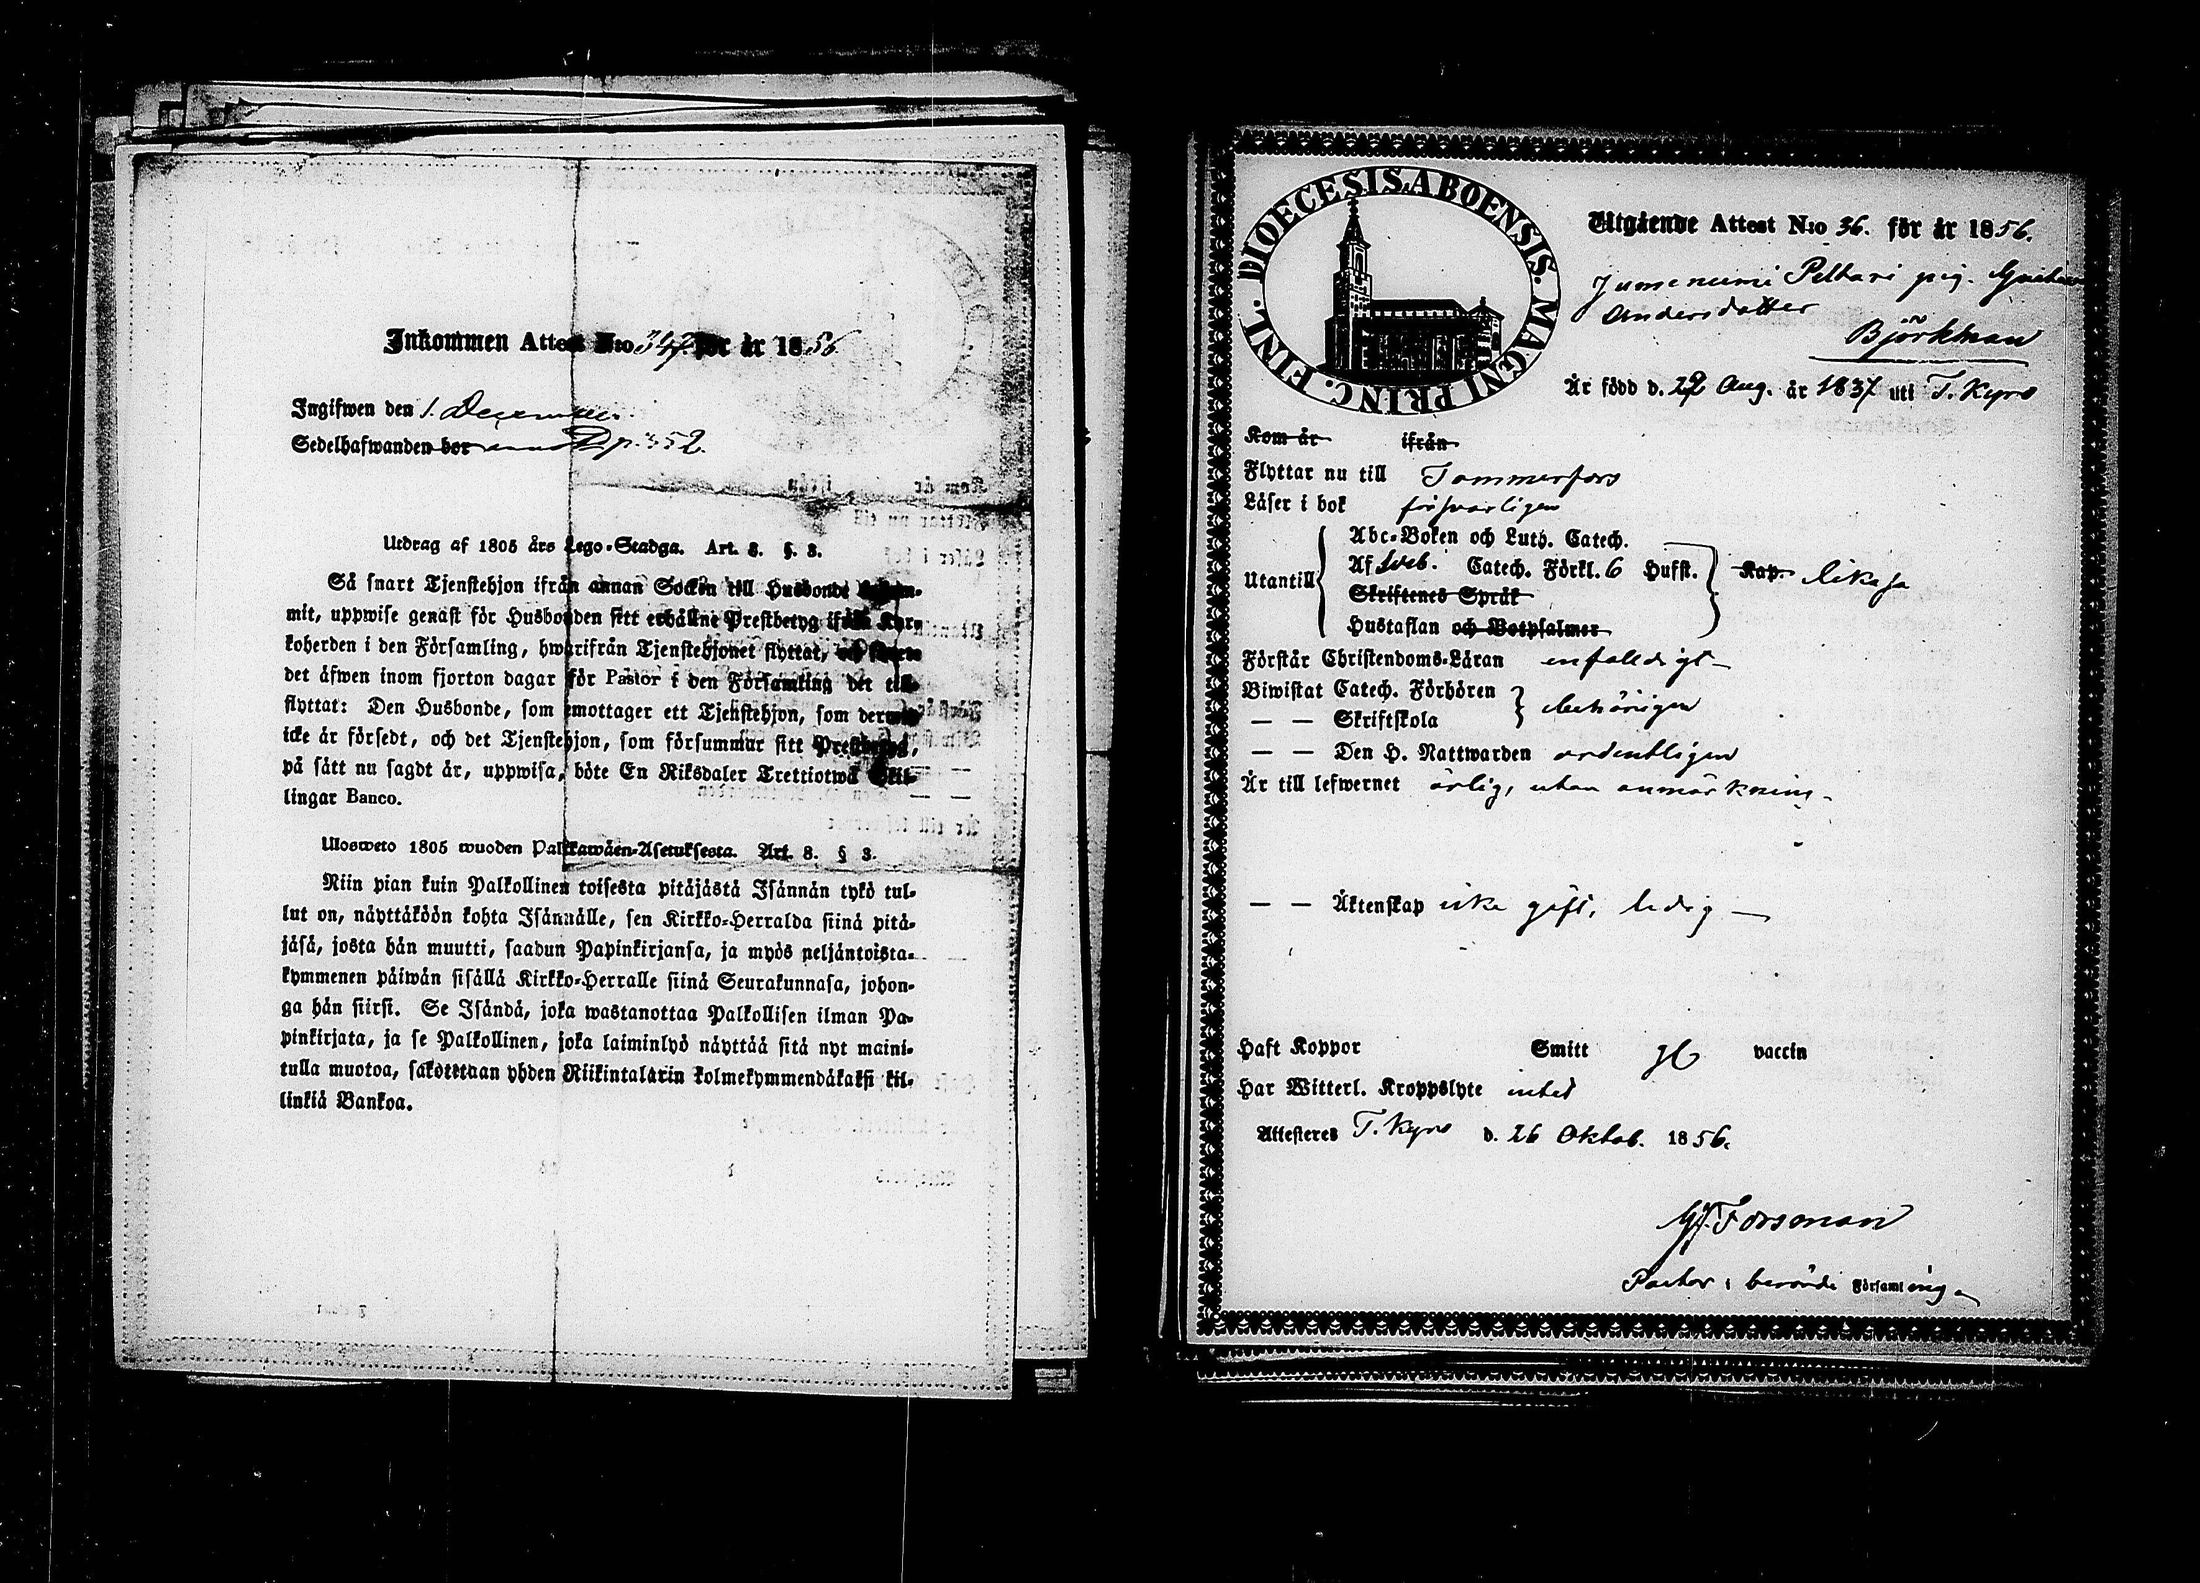 Inkommen Attest N:o 347 för år 1856
Ingifwen den 1. December
Sedelhafwanden bor p. 352.
Utdrag af 1805 års Lego-Stadga. Art. 8. §. 3.
Så snart Tjenstehjon ifrån annan Socken till Husbonde
mit, uppwise genast för Husbonden sitt erhållne Prestbetyg ifrån Kyr-
koherden i den Församling, hwarifrån Tjenstehjonet flyttat, och
det äfwen inom fjorton dagar för Pastor i den Församling det till-
flyttat: Den Husbonde, som emottager ett Tjenstehjon, som dermed
icke är försedt, och det Tjenstehjon, som försummar sitt Prestbetyg,
på sätt nu sagdt är, uppwisa, böte En Riksdaler Trettiotwå Skil-
lingar Banco.
Ulosweto 1805 wuoden Palkkawäen-Asetuksesta. Art. 8. § 3.
Niin pian kuin Palkollinen toisesta pitäjästä Isännän tykö tul-
lut on, näyttäköön kohta Isännälle, sen Kirkko-Herralda siinä pitä-
jäsä, josta hän muutti, saadun Papinkirjansa, ja myös neljäntoista-
kymmenen päiwän sisällä Kirkko-Herralle siinä Seurakunnasa, johon-
ga hän siirsi. Se Isändä, joka wastanottaa Palkollisen ilman Pa-
pinkirjata, ja se Palkollinen, joka laiminlyö näyttää sitä nyt maini-
tulla muotoa, sakotetaan yhden Riikintalarin kolmekymmendäkaksi kil-
linkiä Bankoa.
DIOECESIS ABOENSIS. MAGNI PRINC. FINL.
Utgående Attest N:o 36. för år 1856.
Jumeniemi Peltari pig.
Andersdotter
Björkman
Är född d. 22 Aug. år 1837 uti T. Kyro
Kom år ifrån
Flyttar nu till Tammerfors
Läser i bok försvarligen
Utantill
Abc-Boken och Luth. Catech.
Af Sveb. Catech. Förkl. 6 Hufst. Kap. likaså
Skriftenes Språk
Hustaflan och Botpsalmer
Förstår Christendoms-Läran enfaldigt
Biwistat Catech. Förhören behörigen
— — Skriftskola
— — Den H. Nattwarden ordentligen
Är till lefwernet ärlig, utan anmärkning
— — Äktenskap icke gift, ledig
Haft Koppor Smitt gl vaccin
Har Witterl. Kroppslyte intet
Attesteres T. Kyro d. 26 Oktob. 1856.
Forsman
Pastor i berörde Församling